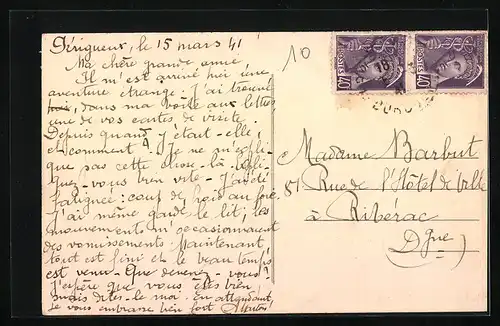 Périgueux, le 15 mars 41
Ma chère grande amie
Il m'est arrivé hier une
aventure étrange. J'ai trouvé
hier, dans ma boîte aux lettres
une de vos cartes de visite.
Depuis quand y était-elle,
et comment? Je ne m'expli-
que pas cette chose-là. Expli-
quez-vous bien vite - J'ai été
fatiguée: coup de froid au foie.
J'ai même gardé le lit; les
mouvements m'occasionnaient
des vomissements. Maintenant
tout est fini et le beau temps
est venu - Que devenez-vous?
J'espère que vous êtes bien
mais dites-le moi. En attendant,
je vous embrasse bien fort
10
POSTES
40
POSTES
40
18
Madame Barbut
81 Rue de l'Hôtel de Ville
à Ribérac
Dgne